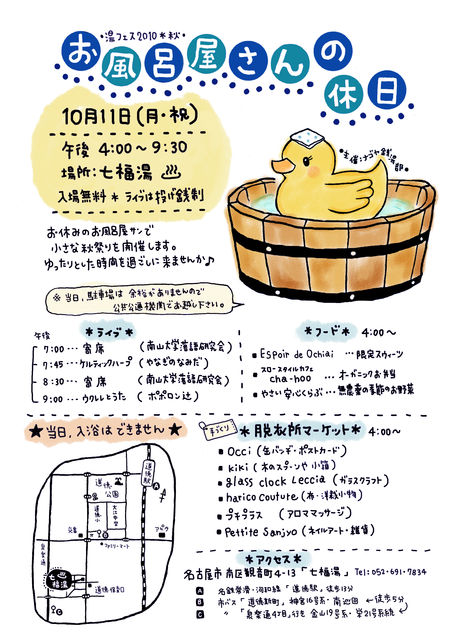 •湯フェス2010＊秋•
お風呂屋さんの
休日
10月11日(月・祝)
午後 4:00〜9:30
場所:七福湯
入場無料＊ライブは投げ銭制
•主催:ナゴヤ銭湯部•
お休みのお風呂屋サンで
小さな秋祭りを開催します。
ゆったりとした時間を過ごしに来ませんか♪
※当日、駐車場は余裕がありませんので
公共交通機関でお越し下さい。
＊ライブ＊
午後
7:00…寄席 (南山大学落語研究会)
7:45…ケルティックハープ (やなぎのなみだ)
8:30…寄席 (南山大学落語研究会)
9:00…ウクレレとうた (ポポロン辻)
＊フード＊ 4:00〜
■ ESPoir de Ochiai …限定スウィーツ
■ スロースタイルカフェ
cha-hoo …オーガニックお弁当
■ やさい安心くらぶ…無農薬の季節のお野菜
★当日、入浴はできません★
手づくり
＊脱衣所マーケット＊ 4:00〜
■ Occi (缶バッヂ・ポストカード)
■ kiki (木のスプーンや小箱)
■ glass clock Leccia (ガラスクラフト)
■ harico couture (布・洋裁小物)
■ プチプラス (アロママッサージ)
■ Petite Sanjyo (ネイルアート・雑貨)
道徳駅
A
道徳公園
道徳小
大江中学
交番
B
ファミリーマート
アパタ
東海通
七福湯
道徳保育園
C
＊アクセス＊
名古屋市南区観音町4-13「七福湯」Tel:052-691-7834
A 名鉄常滑・河和線「道徳駅」徒歩13分
B 市バス「道徳新町」神宮16号系・南巡回 ←徒歩5分
C 〃